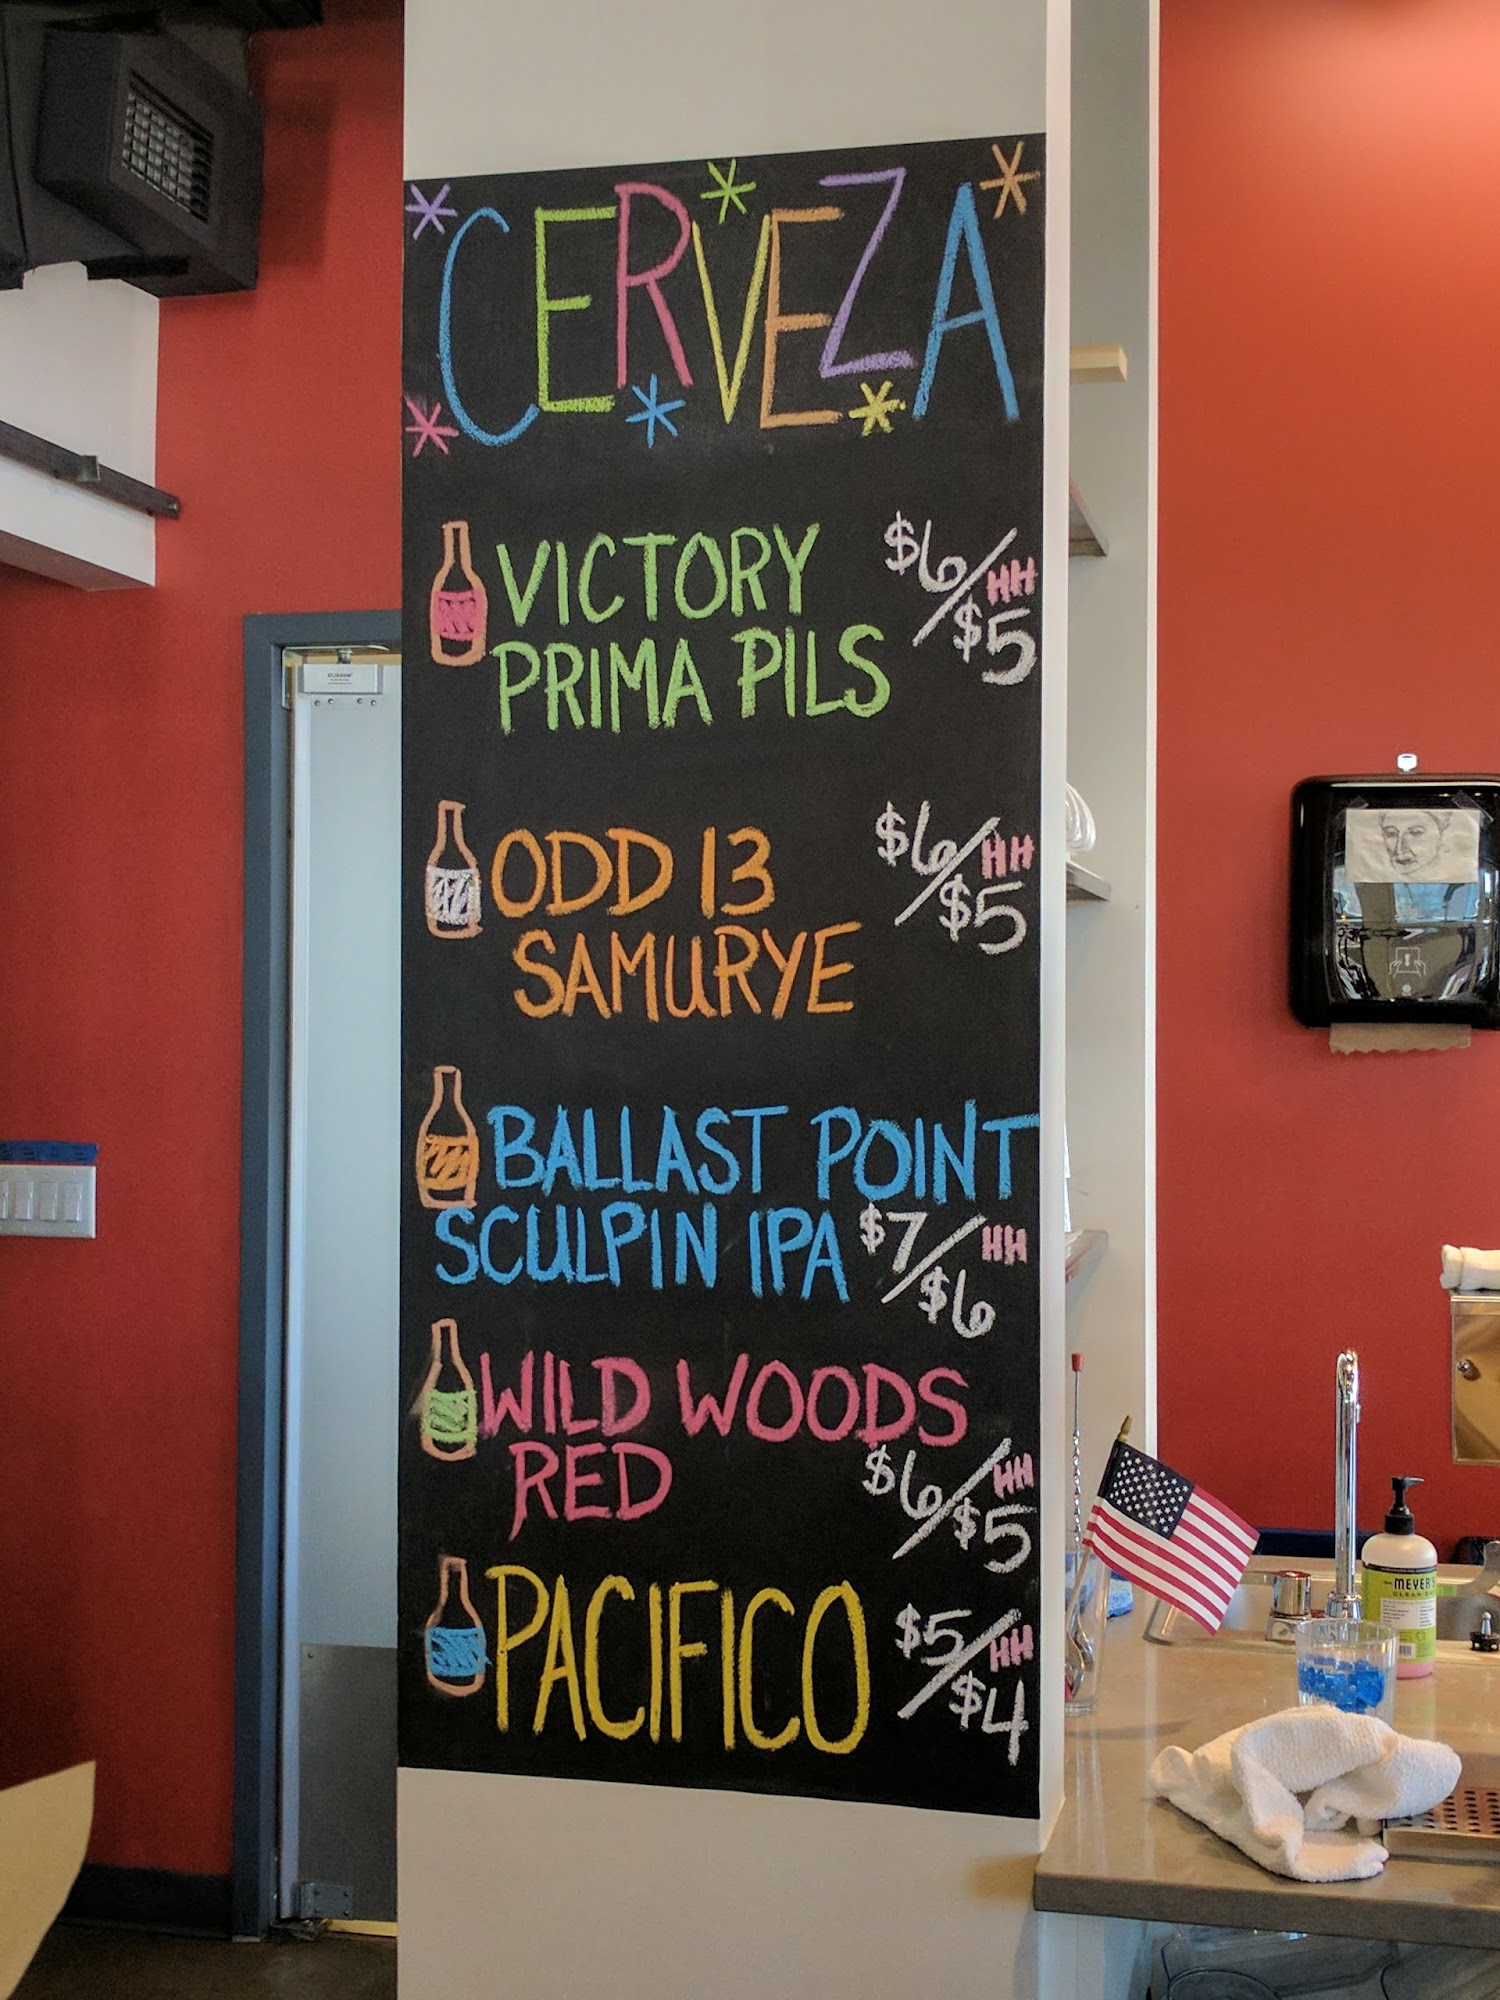 CERVEZA
VICTORY $6/HH
PRIMA PILS $5
ODD 13 $6/HH
SAMURYE $5
BALLAST POINT
SCULPIN IPA $7/HH
$6
WILD WOODS
RED $6/HH
$5
PACIFICO $5/HH
$4
MEYER'S
CLEAN DAY